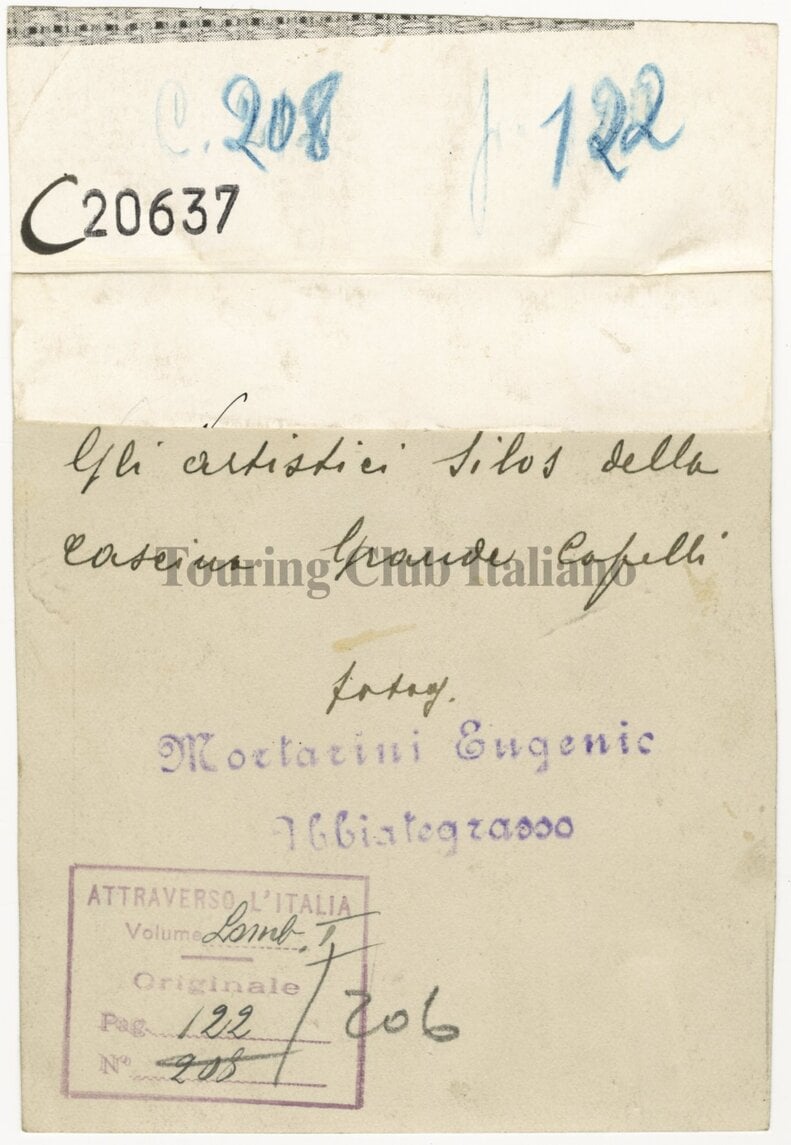 C. 208 f. 122
C20637
Gli artistici silos della
cascina Grande Capelli
Touring Club Italiano
fotog.
Mortarini Eugenio
Abbiategrasso
ATTRAVERSO L'ITALIA
Volume Lomb. I
Originale
Pag. 122
N° 208
206